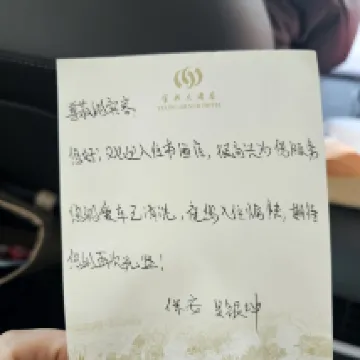 尊敬的宾客
您好,欢迎入住本酒店,很高兴为您服务
您的爱车已清洗,祝您入住愉快,期待
您的再次光临!
保安 吴银坤